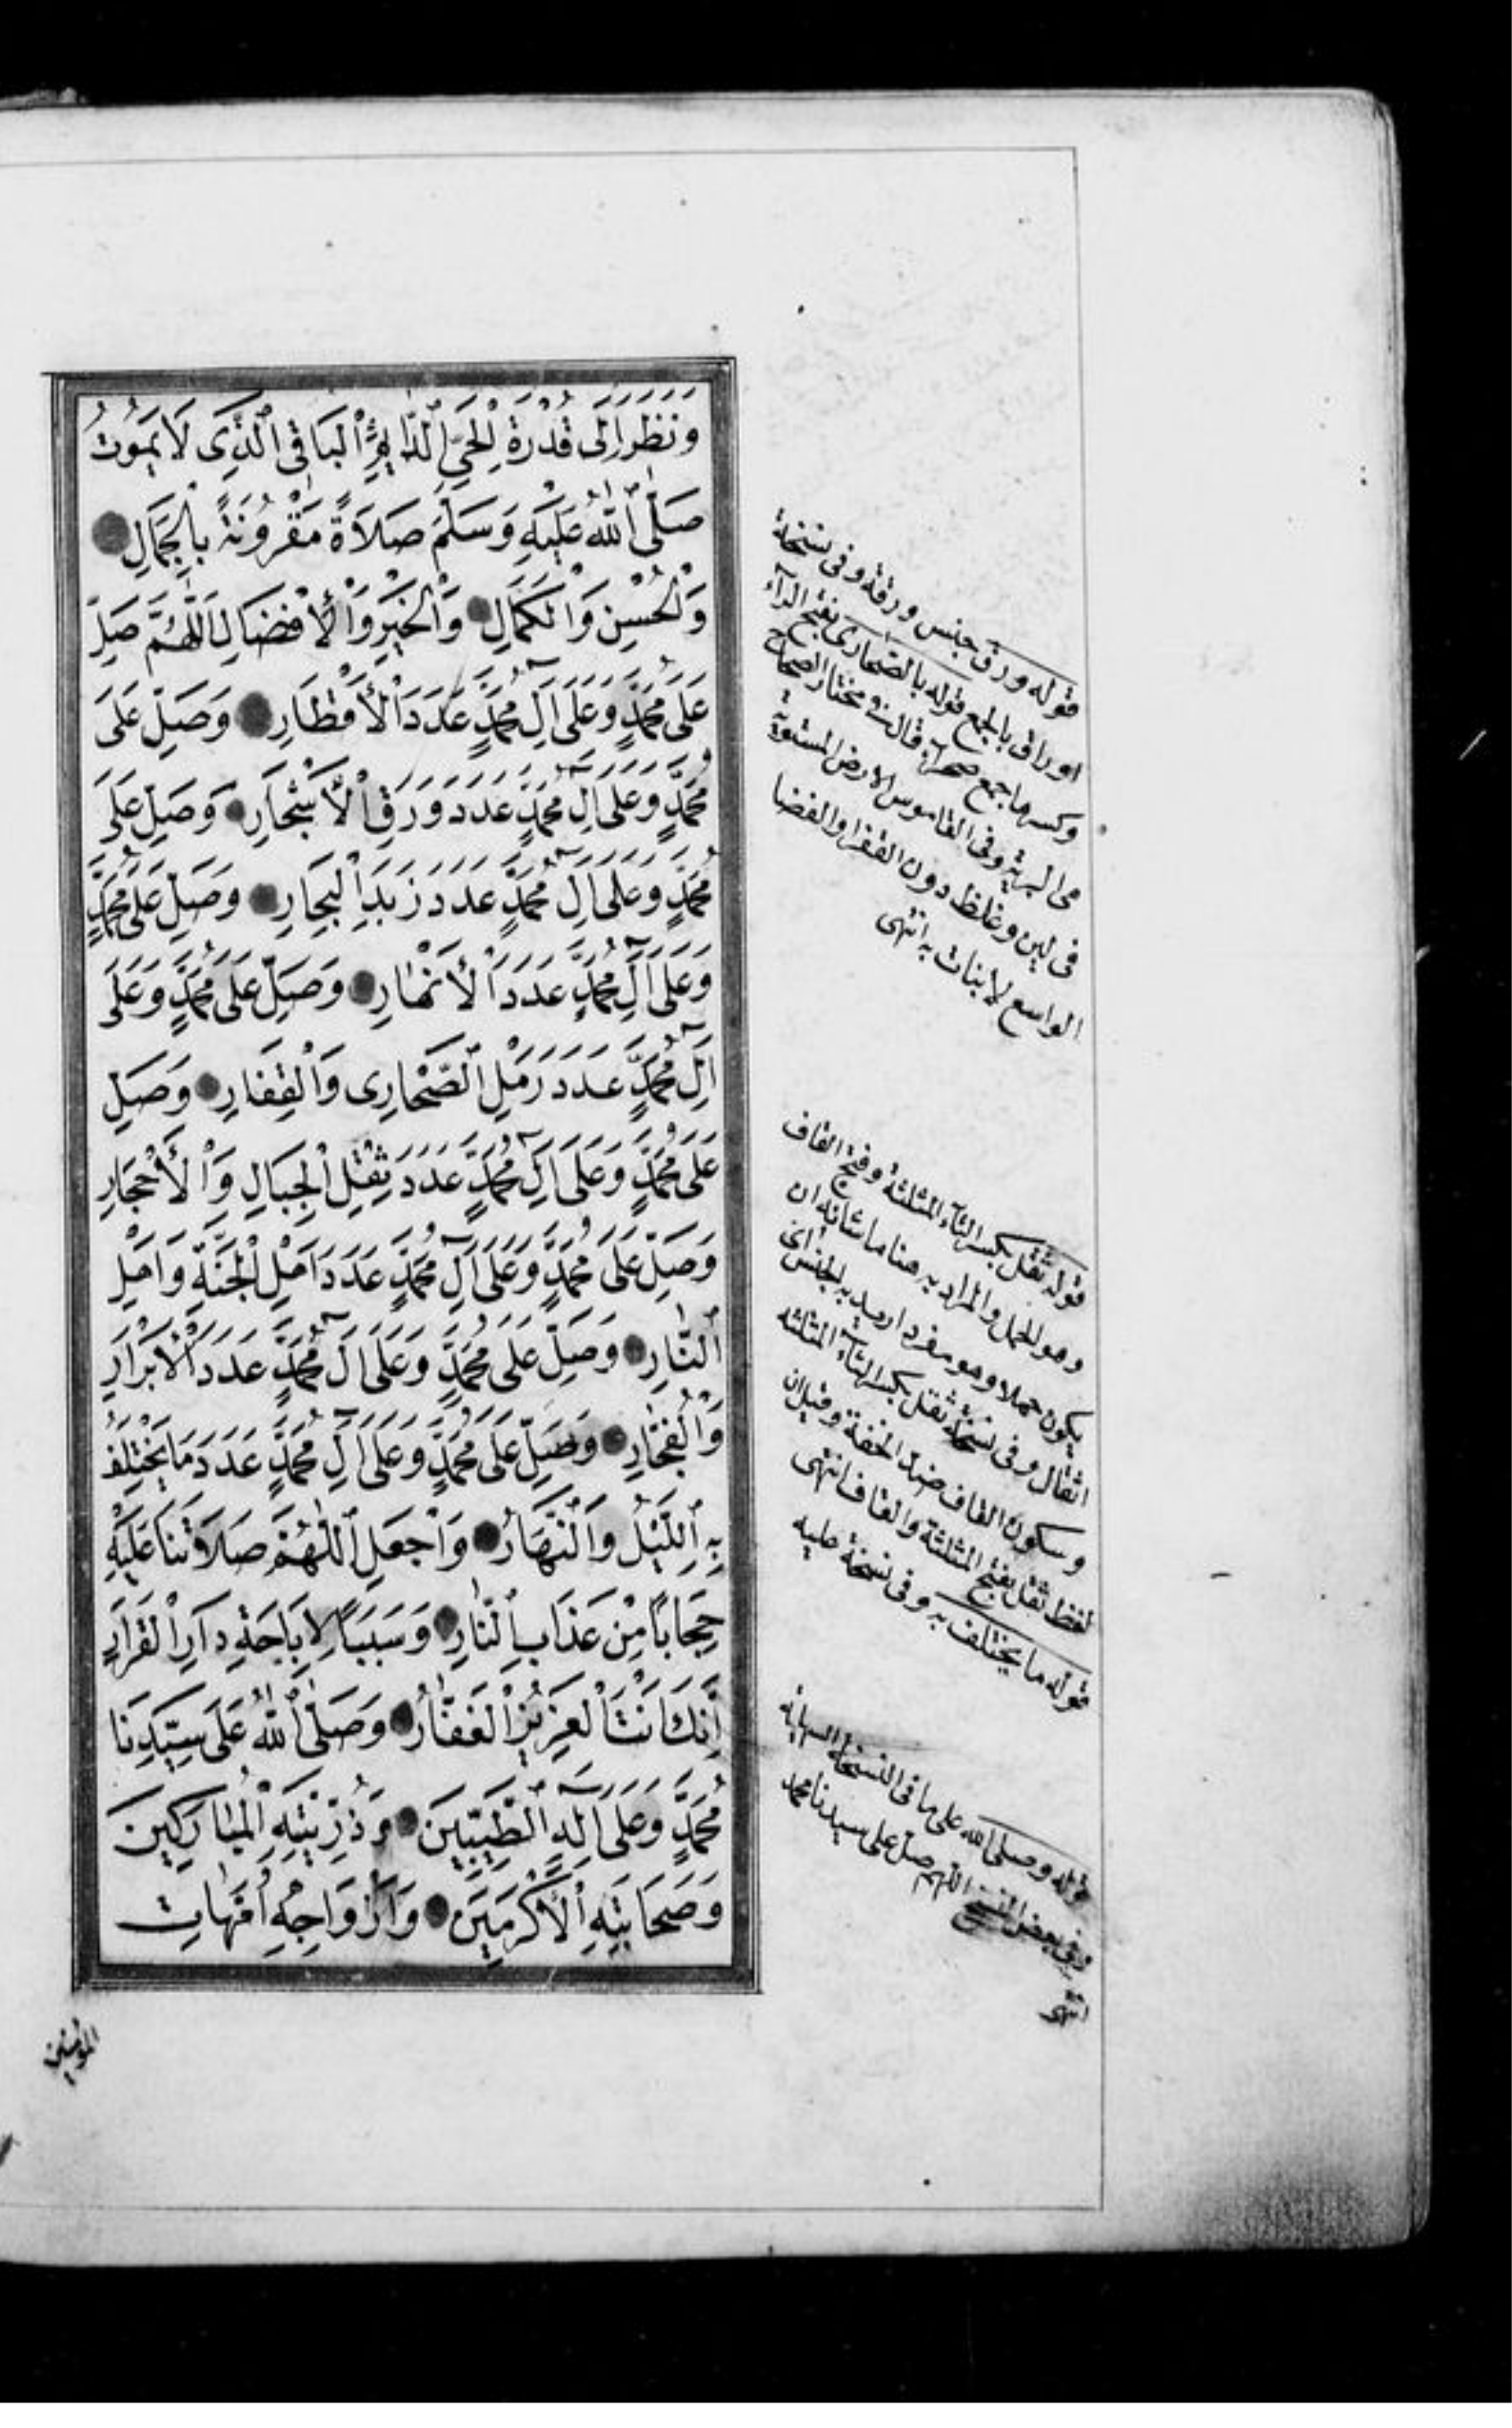 وَنَظَرَ اِلٰى قُدْرَةِ الْحَيِّ الدَّائِمِ الْبَاقِى الَّذِى لَا يَمُوتُ
صَلَّى اللّٰهُ عَلَيْهِ وَسَلَّمَ صَلَاةً مَقْرُونَةً بِالْجَمَالِ
وَالْحُسْنِ وَالْكَمَالِ وَالْخَيْرِ وَالْأِفْضَالِ اَللّٰهُمَّ صَلِّ
عَلٰى مُحَمَّدٍ وَعَلٰى اٰلِ مُحَمَّدٍ عَدَدَ الْأَقْطَارِ وَصَلِّ عَلٰى
مُحَمَّدٍ وَعَلٰى اٰلِ مُحَمَّدٍ عَدَدَ وَرَقِ الْأَشْجَارِ وَصَلِّ عَلٰى
مُحَمَّدٍ وَعَلٰى اٰلِ مُحَمَّدٍ عَدَدَ زَبَدِ الْبِحَارِ وَصَلِّ عَلٰى مُحَمَّدٍ
وَعَلٰى اٰلِ مُحَمَّدٍ عَدَدَ الْأَنْهَارِ وَصَلِّ عَلٰى مُحَمَّدٍ وَعَلٰى
اٰلِ مُحَمَّدٍ عَدَدَ رَمْلِ الصَّحَارِى وَالْقِفَارِ وَصَلِّ
عَلٰى مُحَمَّدٍ وَعَلٰى اٰلِ مُحَمَّدٍ عَدَدَ ثِقْلِ الْجِبَالِ وَالْأَحْجَارِ
وَصَلِّ عَلٰى مُحَمَّدٍ وَعَلٰى اٰلِ مُحَمَّدٍ عَدَدَ اَهْلِ الْجَنَّةِ وَاَهْلِ
النَّارِ وَصَلِّ عَلٰى مُحَمَّدٍ وَعَلٰى اٰلِ مُحَمَّدٍ عَدَدَ الْاَبْرَارِ
وَالْفُجَّارِ وَصَلِّ عَلٰى مُحَمَّدٍ وَعَلٰى اٰلِ مُحَمَّدٍ عَدَدَ مَا يَخْتَلِفُ
بِهِ اللَّيْلُ وَالنَّهَارُ وَاجْعَلِ اللّٰهُمَّ صَلَاتَنَا عَلَيْهِ
حِجَابًا مِنْ عَذَابِ النَّارِ وَسَبَبًا لِاِبَاحَةِ دَارِ الْقَرَارِ
اِنَّكَ اَنْتَ الْعَزِيزُ الْغَفَّارُ وَصَلَّى اللّٰهُ عَلٰى سَيِّدِنَا
مُحَمَّدٍ وَعَلٰى اٰلِهِ الطَّيِّبِينَ وَذُرِّيَّتِهِ الْمُبَارَكِينَ
وَصَحَابَتِهِ الْأَكْرَمِينَ وَاَزْوَاجِهِ اُمَّهَاتِ
المؤمنين
قوله ورق جنس ورقة وفى نسخة
اوراق بالجمع قوله بالصحارى بفتح الراء
وكسرها جمع صحراء قال فى مختار الصحاح
هى البرية وفى القاموس الارض المستوية
فى لين وغلظ دون القف او الفضا
الواسع لا نبات به انتهى
قوله ثقل بكسر الثاء المثلثة وفتح القاف
وهو الحمل والمراد به هنا ما شانه ان
يكون حملا وهو مفرد اريد به الجنس اى
اثقال وفى نسخة ثقل بكسر الثاء المثلثة
وسكون القاف ضد الخفة وقيل ان
لفظ ثقل بفتح المثلثة والقاف انتهى
قوله ما يختلف به وفى نسخة عليه
قوله وصلى الله على ما فى النسخة السهلية
وفى بعض النسخ اللهم صل على سيدنا محمد
انتهى